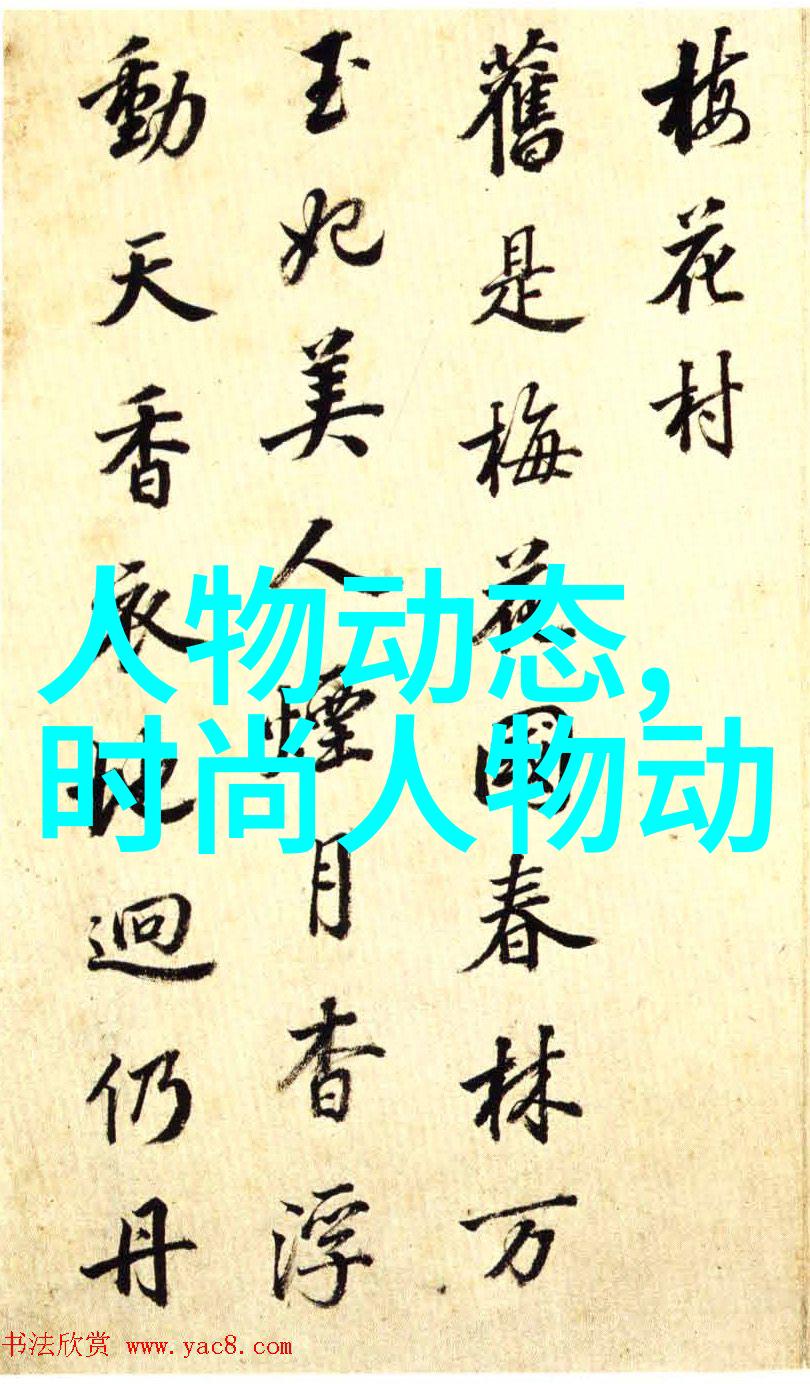 梅花村
舊是梅花國春林万
玉妃美人煙月杳浮
動天香地迥仍丹
人物动态,
时尚人物动
书法欣赏 www.yac8.com